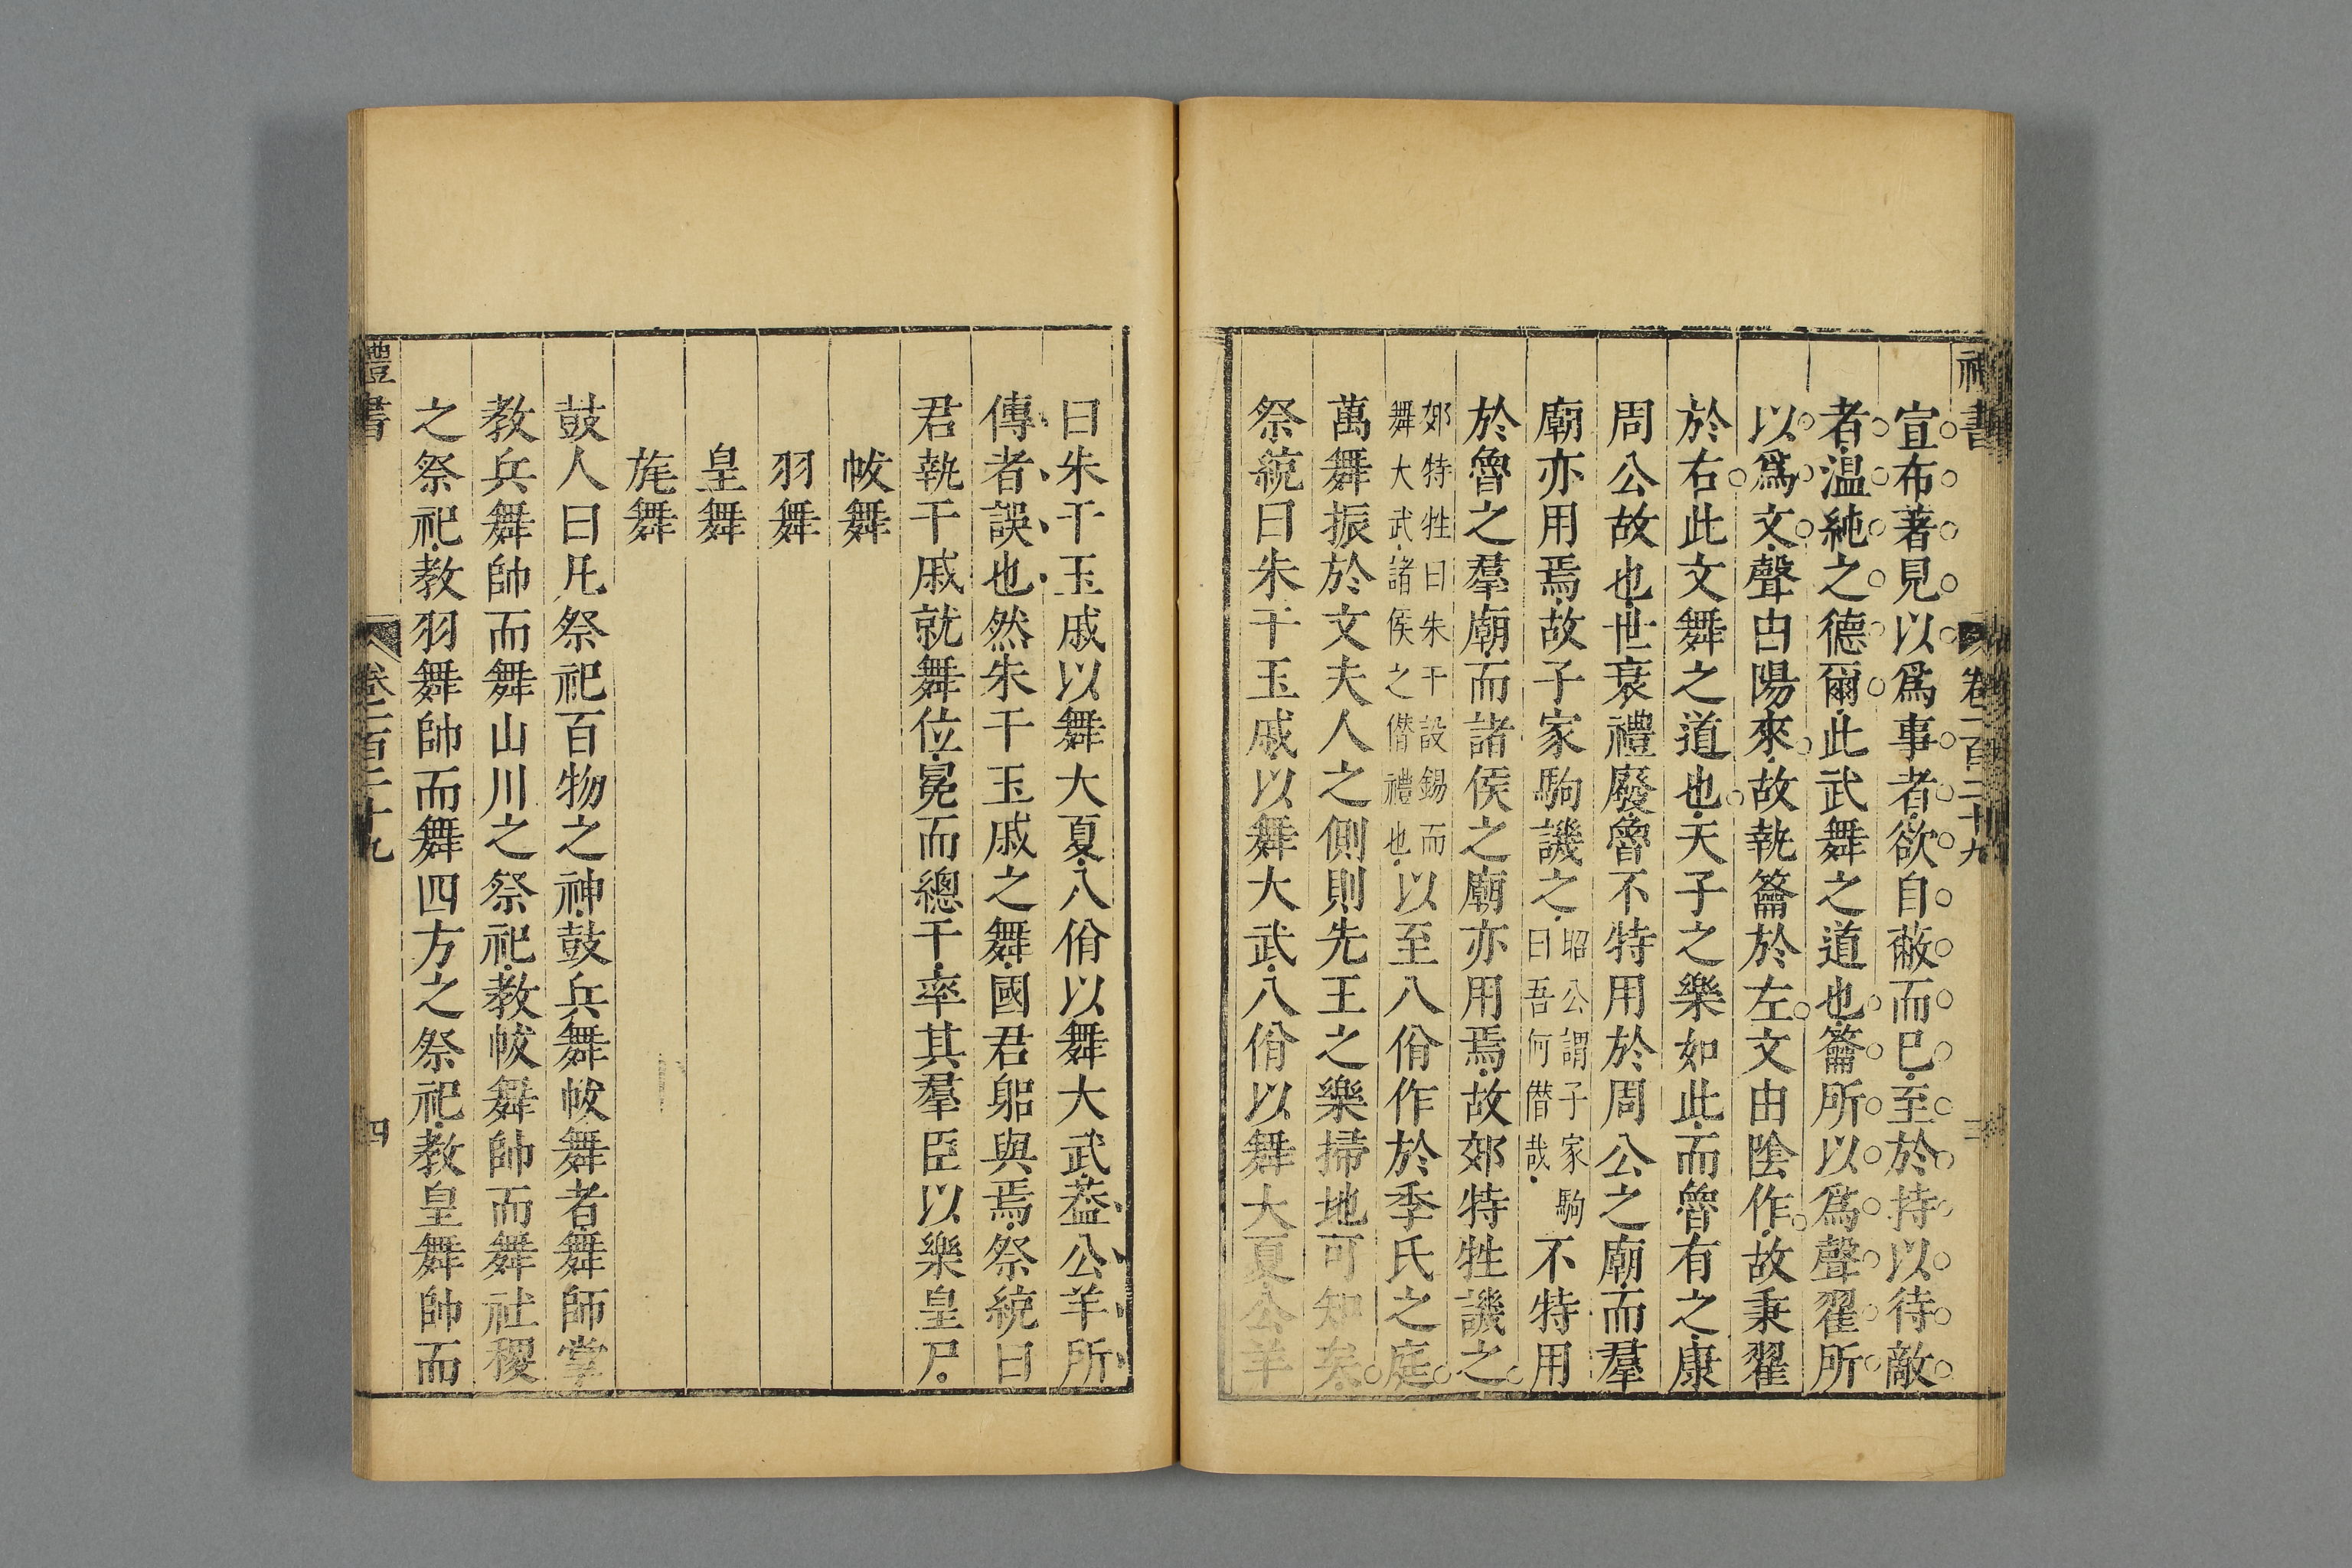 禮書
卷一百二十九
三
宣布著見以爲事者欲自蔽而巳至於持以待敵
者温純之德爾此武舞之道也籥所以爲聲翟所
以爲文聲由陽來故執籥於左文由陰作故秉翟
於右此文舞之道也天子之樂如此而魯有之康
周公故也世衰禮廢魯不特用於周公之廟而羣
廟亦用焉故子家駒譏之昭公謂子家駒曰吾何僣哉不特用
於魯之羣廟而諸侯之廟亦用焉故郊特牲譏之
郊特牲曰朱干設錫而舞大武諸侯之僣禮也以至八佾作於季氏之庭
萬舞振於文夫人之側則先王之樂掃地可知矣
祭統曰朱干玉戚以舞大武八佾以舞大夏公羊
曰朱干玉戚以舞大夏八佾以舞大武葢公羊所
傳者誤也然朱干玉戚之舞國君躬與焉祭統曰
君執干戚就舞位冕而總干率其羣臣以樂皇尸
帗舞
羽舞
皇舞
旄舞
鼓人曰凡祭祀百物之神鼓兵舞帗舞者舞師掌
教兵舞帥而舞山川之祭祀教帗舞帥而舞社稷
之祭祀教羽舞帥而舞四方之祭祀教皇舞帥而
禮書
卷一百二十九
四